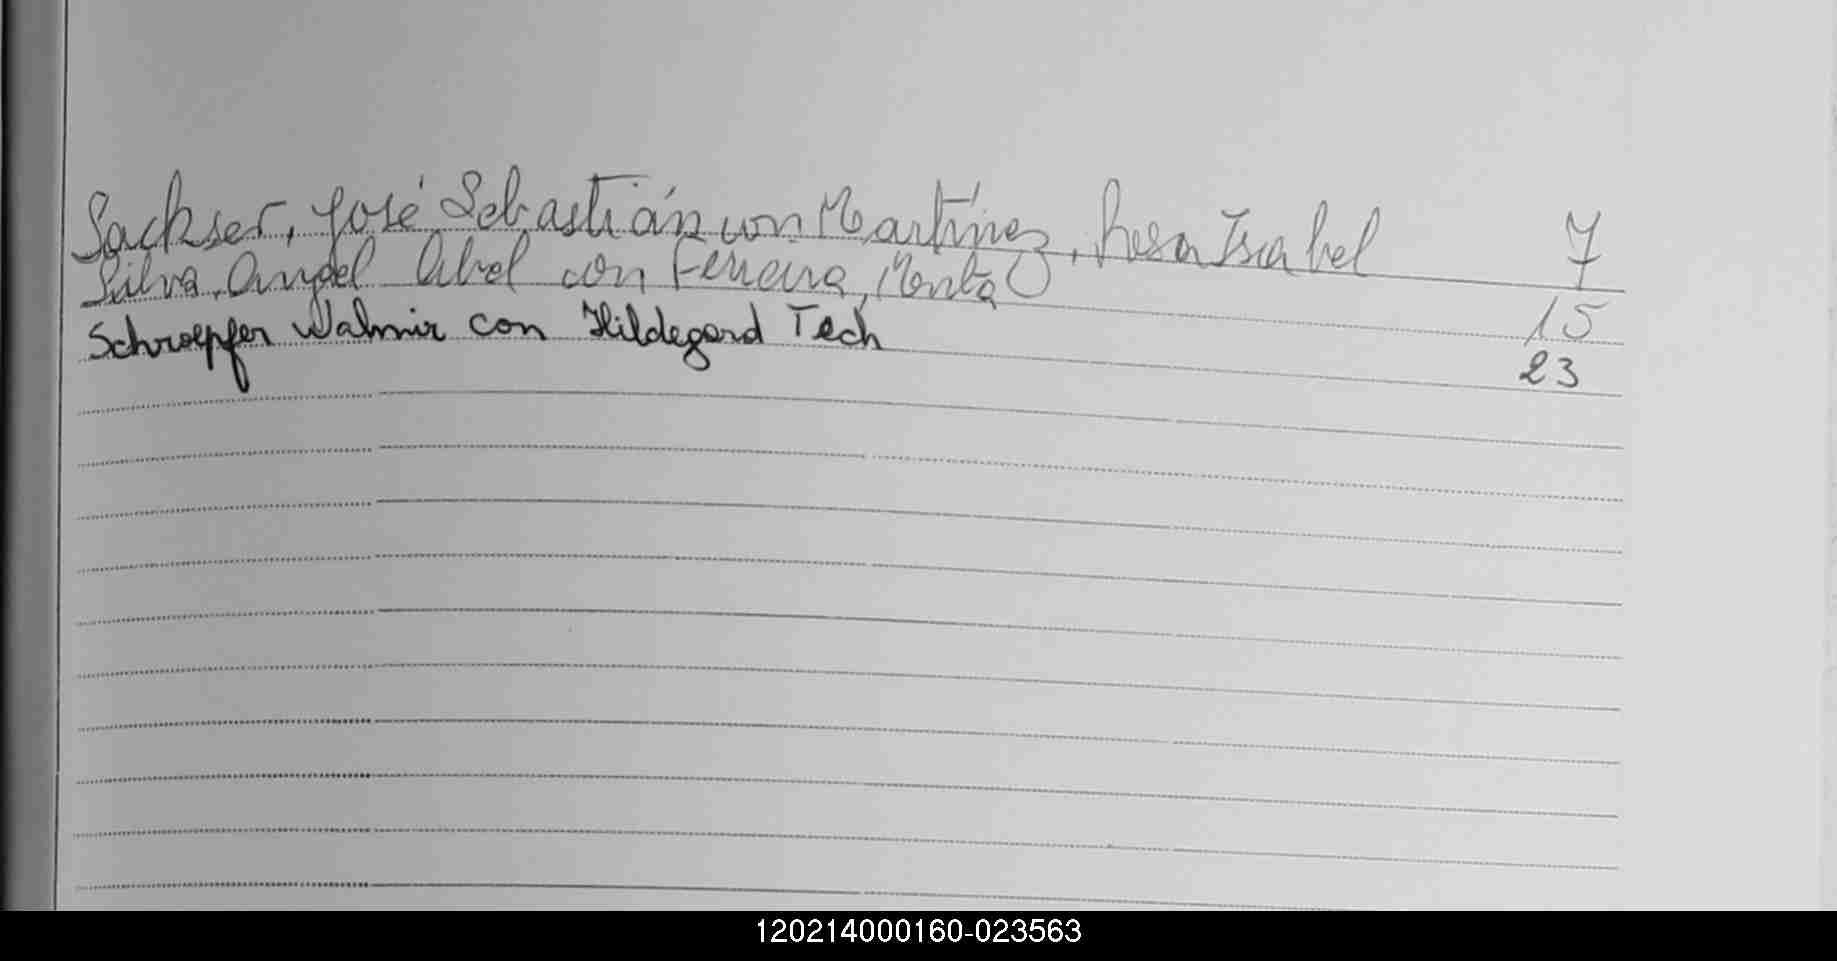 Sackser, José Sebastián con Martínez, Rosa Isabel 7
Silva, Angel Abel con Ferreira, 15
Schroepfer Walmir con Hildegard Tech 23
120214000160-023563